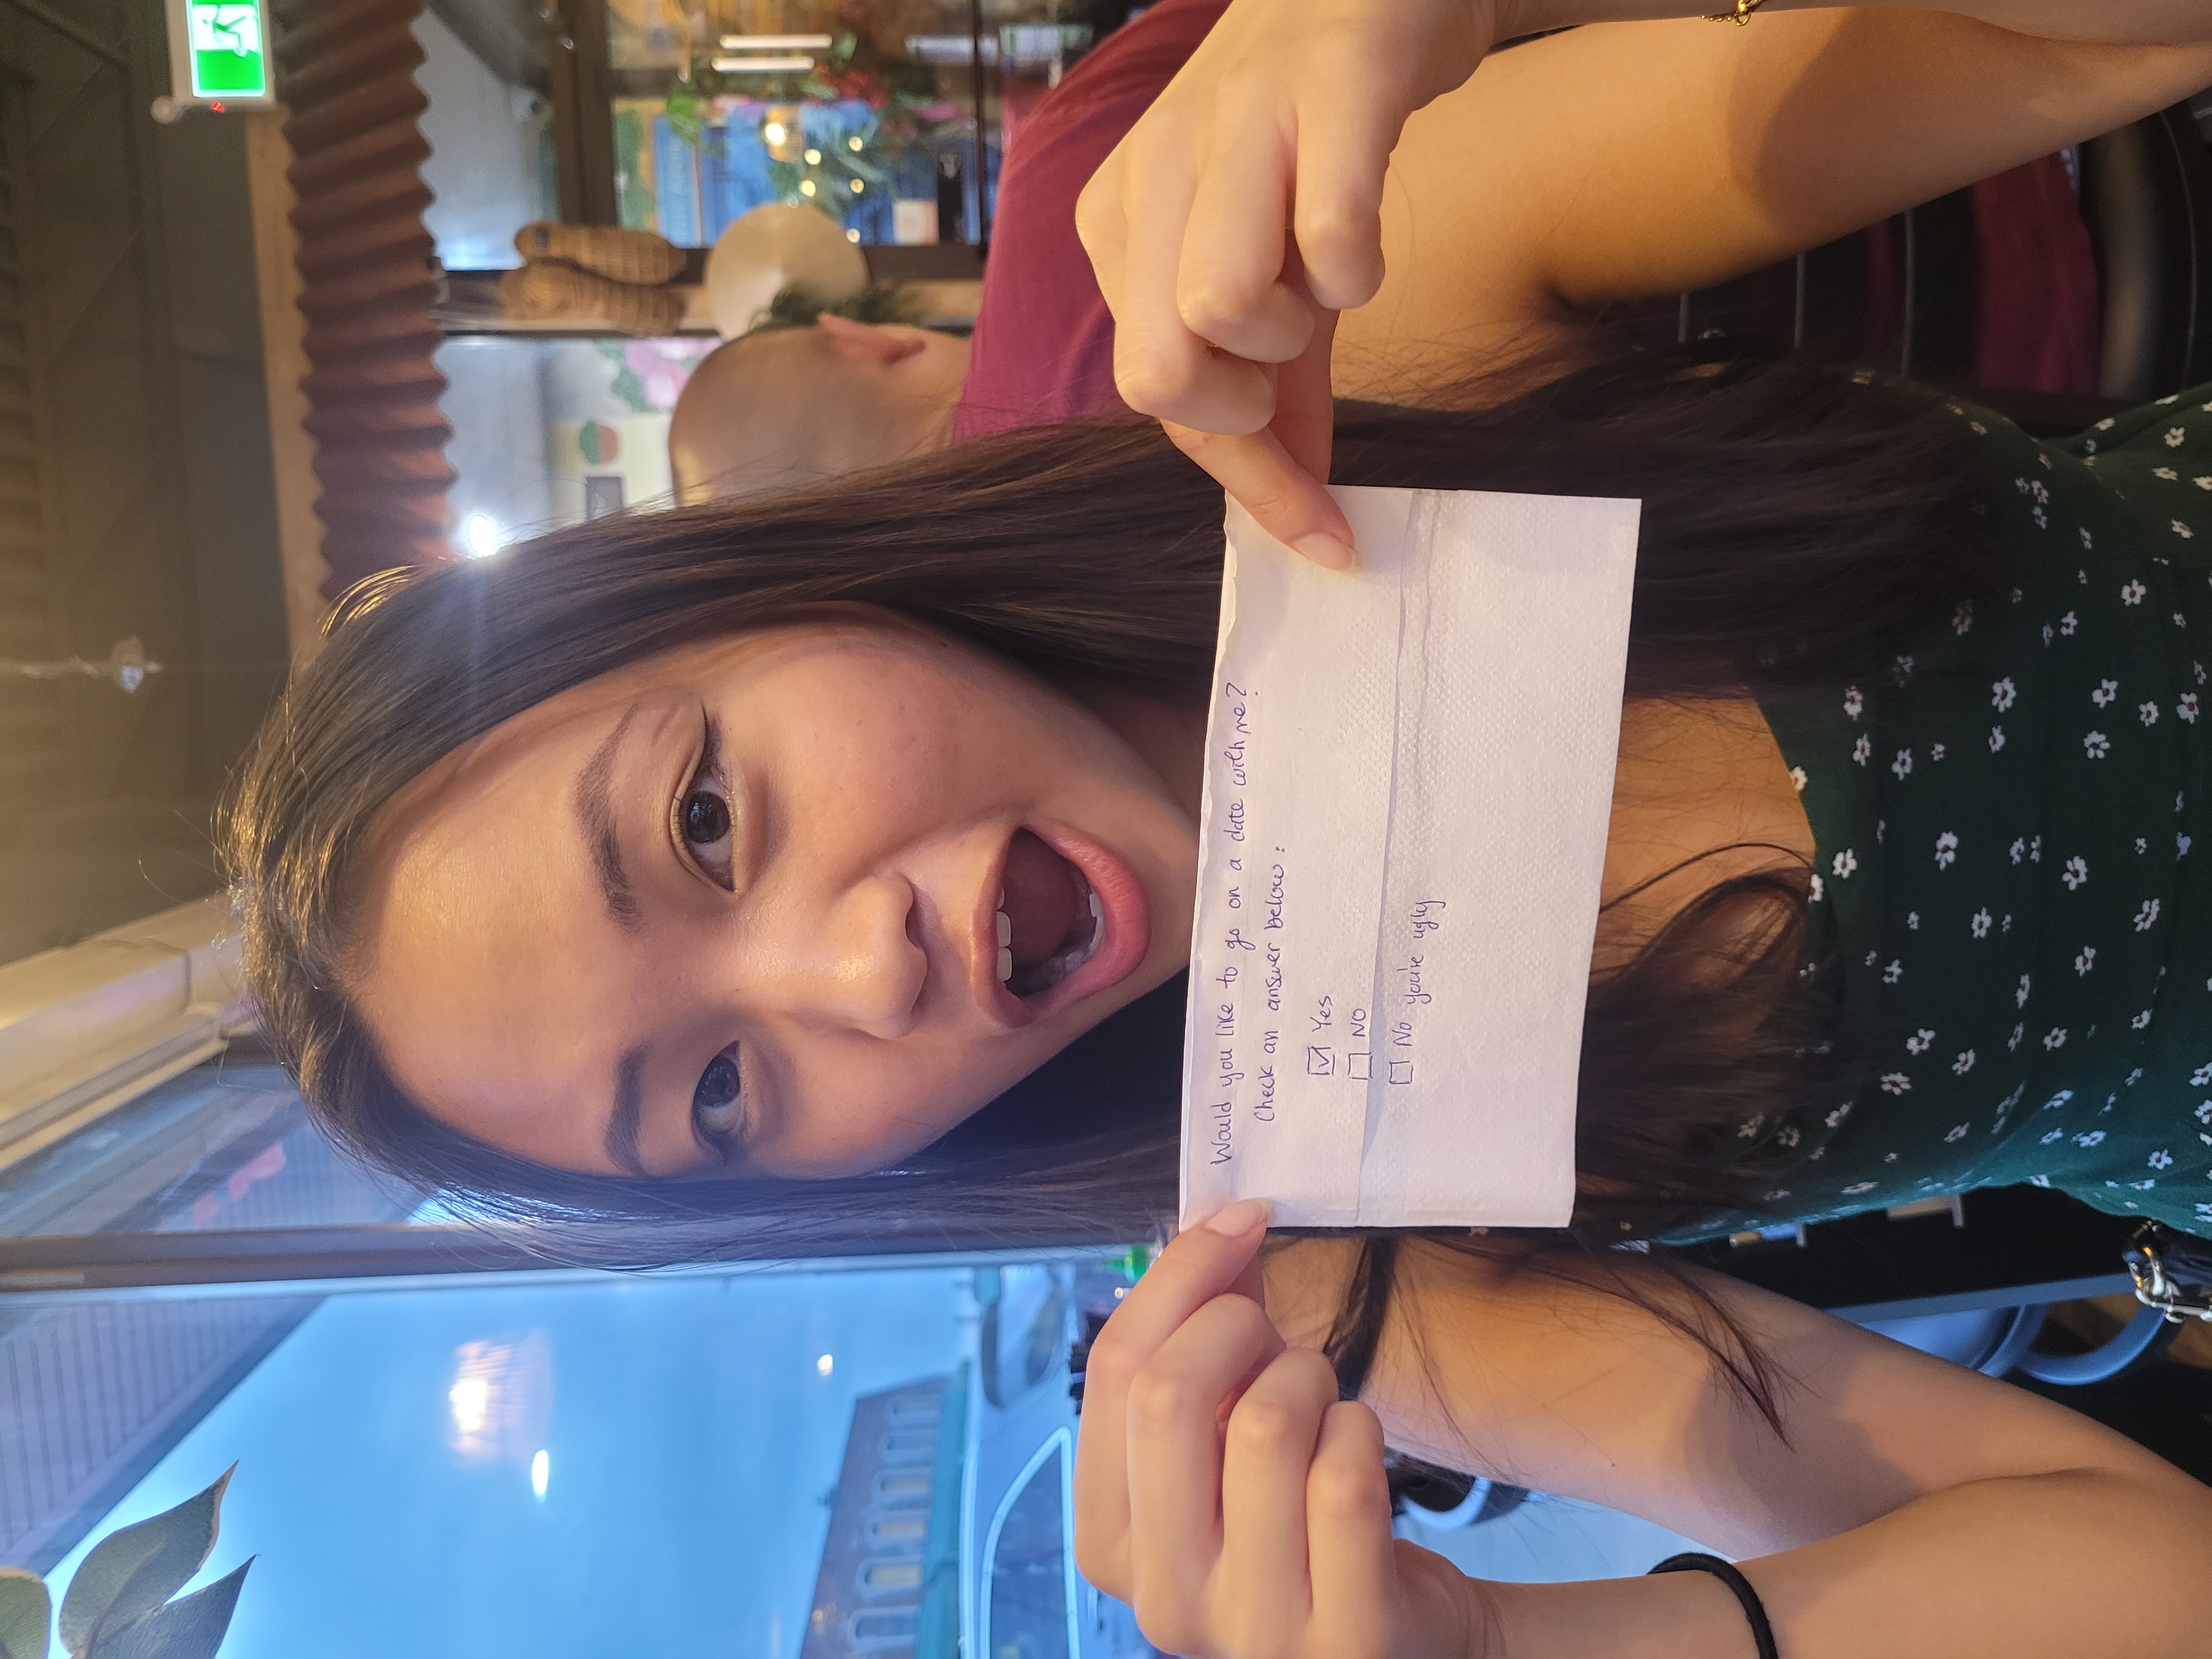 Would you like to go on a date with me?
Check an answer below:
Yes
NO
No you're ugly